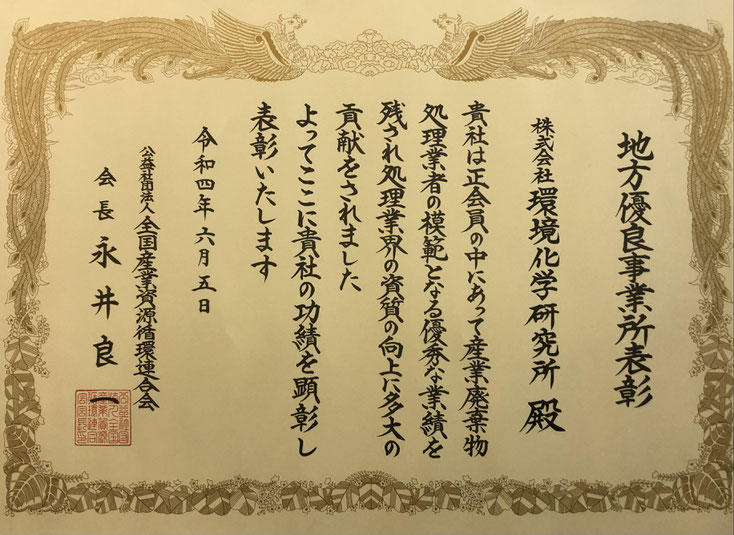 地方優良事業所表彰
株式会社 環境化学研究所 殿
貴社は正会員の中にあって産業廃棄物
処理業者の模範となる優秀な業績を
残され処理業界の資質の向上に多大の
貢献をされました
よってここに貴社の功績を顕彰し
表彰いたします
令和四年六月五日
公益社団法人 全国産業資源循環連合会
会長 永井良一